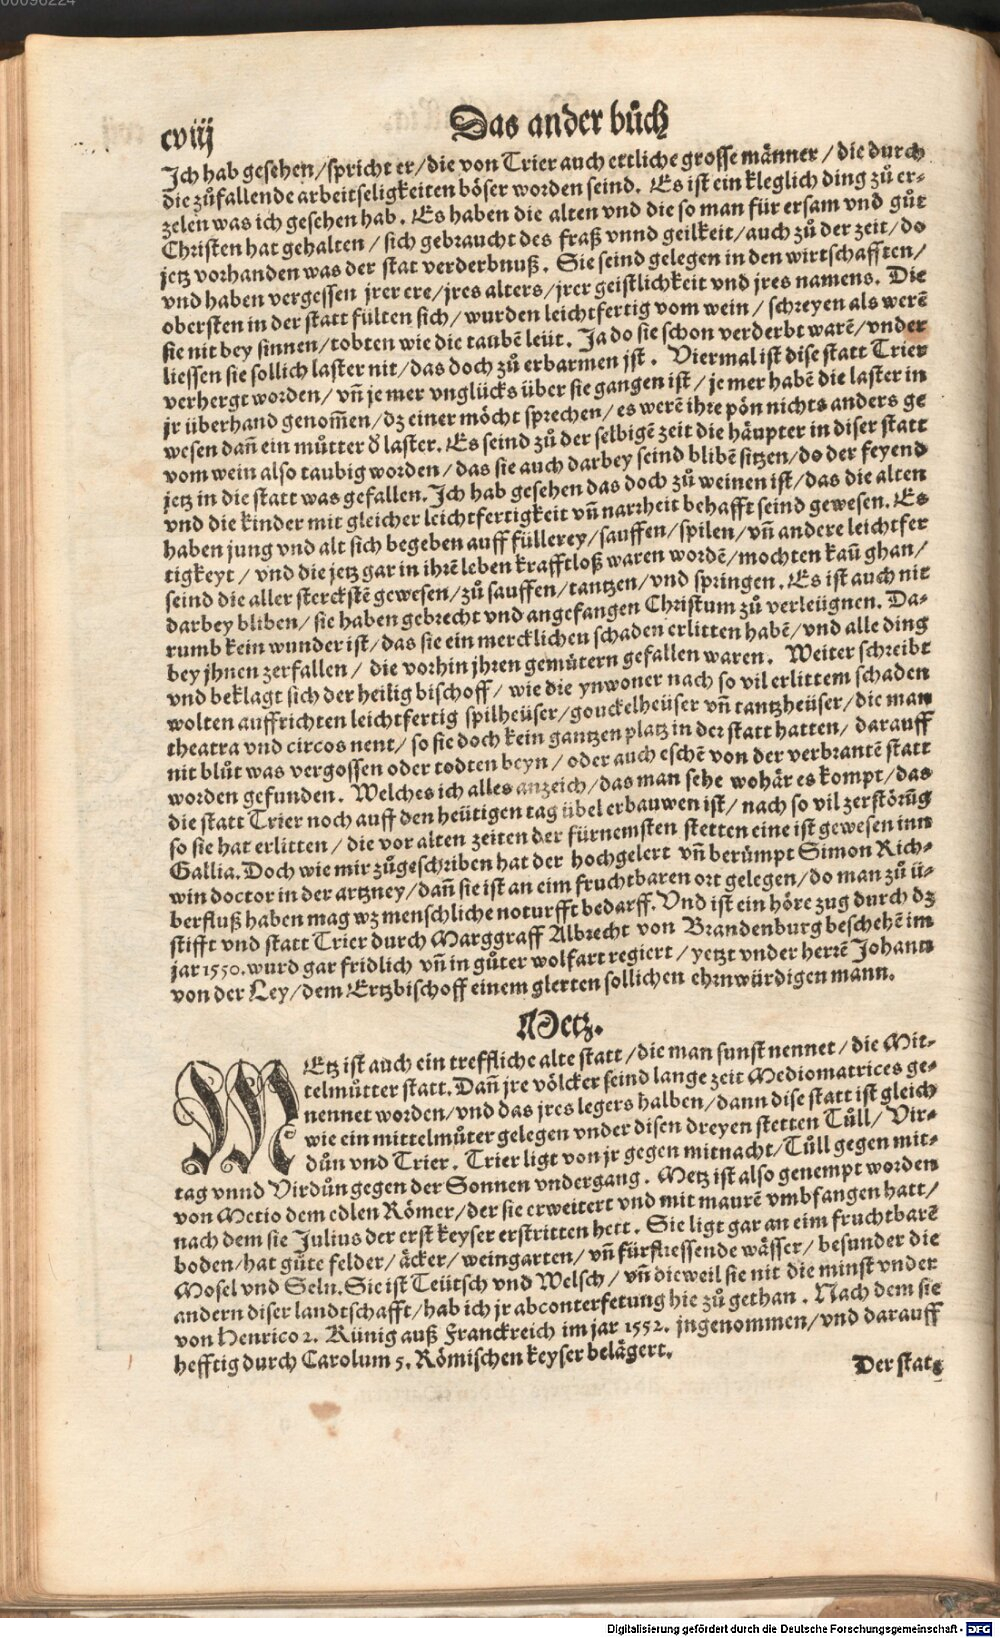 00096224
cviij
Das ander bůch
Ich hab gesehen/spricht er/die von Trier auch ettliche grosse männer / die durch
die zůfallende arbeitseligkeiten böser worden seind. Es ist ein kleglich ding zů er-
zelen was ich gesehen hab. Es haben die alten vnd die so man für ersam vnd gůt
Christen hat gehalten / sich gebraucht des fraß vnnd geilkeit/auch zů der zeit/do
jetz vorhanden was der stat verderbnuß. Sie seind gelegen in den wirtschafften/
vnd haben vergessen jrer ere/jres alters/jrer geistlichkeit vnd jres namens. Die
obersten in der statt fülten sich/wurden leichtfertig vom wein/schreyen als werē
sie nit bey sinnen/tobten wie die taubē leüt. Ja do sie schon verderbt warē/vnder
liessen sie sollich laster nit/das doch zů erbarmen jst. Viermal ist dise statt Trier
verhergt worden/ vn̄ je mer vnglücks über sie gangen ist/je mer habē die laster in
jr überhand genom̄en/dz einer möcht sprechen/es werē ihre pön nichts anders ge
wesen dan̄ ein můtter d̕ laster. Es seind zů der selbigē zeit die häupter in diser statt
vom wein also taubig worden/das sie auch darbey seind blibē sitzen/do der feyend
jetz in die statt was gefallen. Ich hab gesehen das doch zů weinen ist/das die alten
vnd die kinder mit gleicher leichtfertigkeit vn̄ narrheit behafft seind gewesen. Es
haben jung vnd alt sich begeben auff füllerey/sauffen/spilen/vn̄ andere leichtfer
tigkeyt/vnd die jetz gar in ihrē leben krafftloß waren wordē/mochten kau̅ ghan/
seind die aller sterckstē gewesen/zů sauffen/tantzen/vnd springen. Es ist auch nit
darbey bliben/sie haben gebrecht vnd angefangen Christum zů verleügnen. Da-
rumb kein wunder ist/das sie ein mercklichen schaden erlitten habē/vnd alle ding
bey jhnen zerfallen/ die vorhin jhren gemütern gefallen waren. Weiter schreibt
vnd beklagt sich der heilig bischoff/wie die ynwoner nach so vil erlittem schaden
wolten auffrichten leichtfertig spilheüser/gouckelheüser vn̄ tantzheüser/die man
theatra vnd circos nent/so sie doch kein gantzen platz in der statt hatten/ darauff
nit blůt was vergossen oder todten beyn/oder auch eschē von der verbrantē statt
worden gefunden. Welches ich alles anzeich/das man sehe wohär es kompt/das
die statt Trier noch auff den heütigen tag übel erbauwen ist/ nach so vil zerstörūg
so sie hat erlitten/die vor alten zeiten der fürnemsten stetten eine ist gewesen inn
Gallia. Doch wie mir zůgeschriben hat der hochgelert vn̄ berümpt Simon Rich-
win doctor in der artzney/dan̄ sie ist an eim fruchtbaren ort gelegen/do man zů ü-
berfluß haben mag wz menschliche noturfft bedarff. Vnd ist ein höre zug durch dz
stifft vnd statt Trier durch Marggraff Albrecht von Brandenburg beschehē im
jar 1550. wurd gar fridlich vn̄ in gůter wolfart regiert/yetzt vnder herrē Johann
von der Ley/dem Ertzbischoff einem glerten sollichen ehrnwürdigen mann.
Metz.
MEtz ist auch ein treffliche alte statt/die man sunst nennet/die Mit-
telmůtter statt. Dan̄ jre völcker seind lange zeit Mediomatrices ge-
nennet worden/vnd das jres legers halben/dann dise statt ist gleich
wie ein mittelmůter gelegen vnder disen dreyen stetten Tůll/ Vir-
důn vnd Trier. Trier ligt von jr gegen mitnacht/Tůll gegen mit-
tag vnnd Virdůn gegen der Sonnen vndergang. Metz ist also genempt worden
von Metio dem edlen Römer/der sie erweitert vnd mit maurē vmbfangen hatt/
nach dem sie Julius der erst keyser erstritten hett. Sie ligt gar an eim fruchtbarē
boden/hat gůte felder/äcker/weingarten/vn̄ fürfliessende wässer/besunder die
Mosel vnd Seln. Sie ist Teütsch vnd Welsch/vn̄ dieweil sie nit die minst vnder
andern diser landtschafft/hab ich jr abconterfetung hie zů gethan. Nach dem sie
von Henrico 2. Künig auß Franckreich im jar 1552. jngenommen/vnd darauff
hefftig durch Carolum 5. Römischen keyser belägert.
Der stat
Digitalisierung gefördert durch die Deutsche Forschungsgemeinschaft - DFG